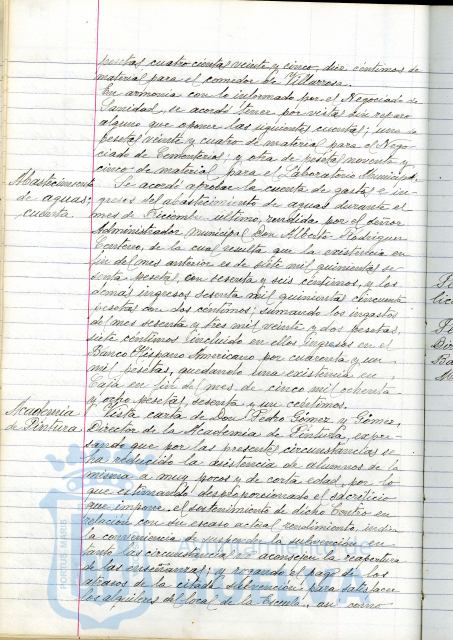 pesetas cuatrocientas veinte y cinco, diez céntimos de
material para el comedor de Villarrosa.
En armonía con lo informado por el Negociado de
Sanidad, se acordó tener por vistas sin reparo
alguno que oponer las siguientes cuentas; una de
pesetas veinte y cuatro de material para el Nego-
ciado de Cementerios; y otra de pesetas noventa y
cinco de material para el Laboratorio Municipal.
Abastecimiento
de aguas;
cuenta
Se acordó aprobar la cuenta de gastos e in-
gresos del abastecimiento de aguas durante el
mes de Diciembre último, rendida por el señor
Administrador municipal Don Alberto Rodríguez
Centeno, de la cual resulta que la existencia en
fin del mes anterior es de siete mil quinientas se-
senta pesetas, con sesenta y seis céntimos, y los
demás ingresos sesenta mil quinientas cincuenta
pesetas con dos céntimos; sumando los ingastos
del mes sesenta y tres mil veinte y dos pesetas,
siete céntimos (incluido en ellos ingresos en el
Banco Hispano Americano por cuarenta y un
mil pesetas, quedando una existencia en
Caja en fin del mes de cinco mil ochenta
y ocho pesetas, sesenta y un céntimos.
Academia
de Pintura
Vista carta de Don Pedro Gómez y Gómez,
Director de la Academia de Pintura, expre-
sando que por las presentes circunstancias se
ha reducido la asistencia de alumnos de la
misma a muy pocos y de corta edad, por lo
que estimando desproporcionado el sacrificio
que impone el sostenimiento de dicho Centro en
relación con su escaso actual rendimiento, indica
la conveniencia de suspender la subvención en
tanto las circunstancias no aconsejen la reapertura
de las enseñanzas; y rogando el pago de los
atrasos de la citada subvención, para satisfacer
los alquileres del local de la Escuela, así como